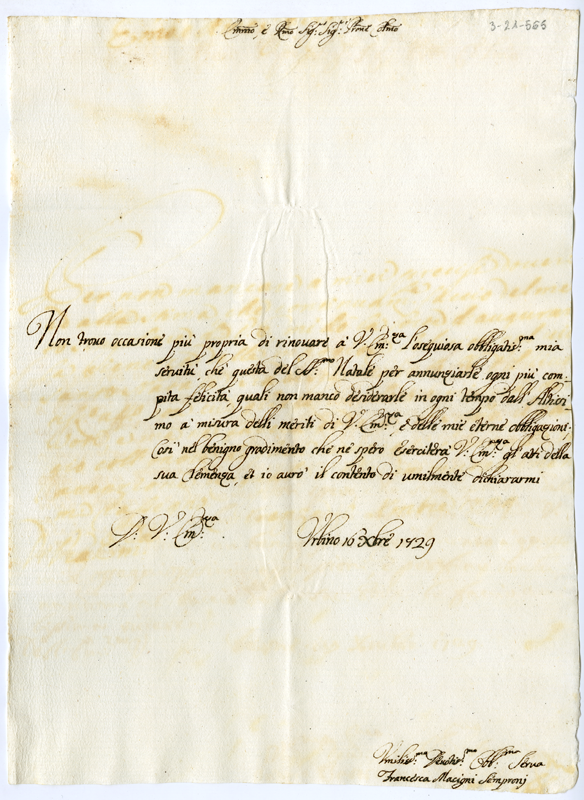 3-21-566
Emmo, e Rmo Sig.r Sig.r Prone Colmo
Non trovo occasione più propria di rinovare à V.ra Em.nza l'osequiosa obbligatis.ma mia
servitù che questa del SS.mo Natale per annunziarle ogni più com-
pita felicità quali non manco desiderarle in ogni tempo dall'Altissi-
mo à misura delli meriti di V.ra Em.nza, e delle mie eterne obbligazioni.
Così nel benigno gradimento che ne spero eserciterà V.ra Em.nza gl'atti della
sua Clemenza, et io aurò il contento di umilmente dichiararmi
D: V.ra Em.nza
Urbino 16 Xbre 1729
Umilis.ma Devotis.ma Obb.ma Serva
Francesca Macigni Sempronj